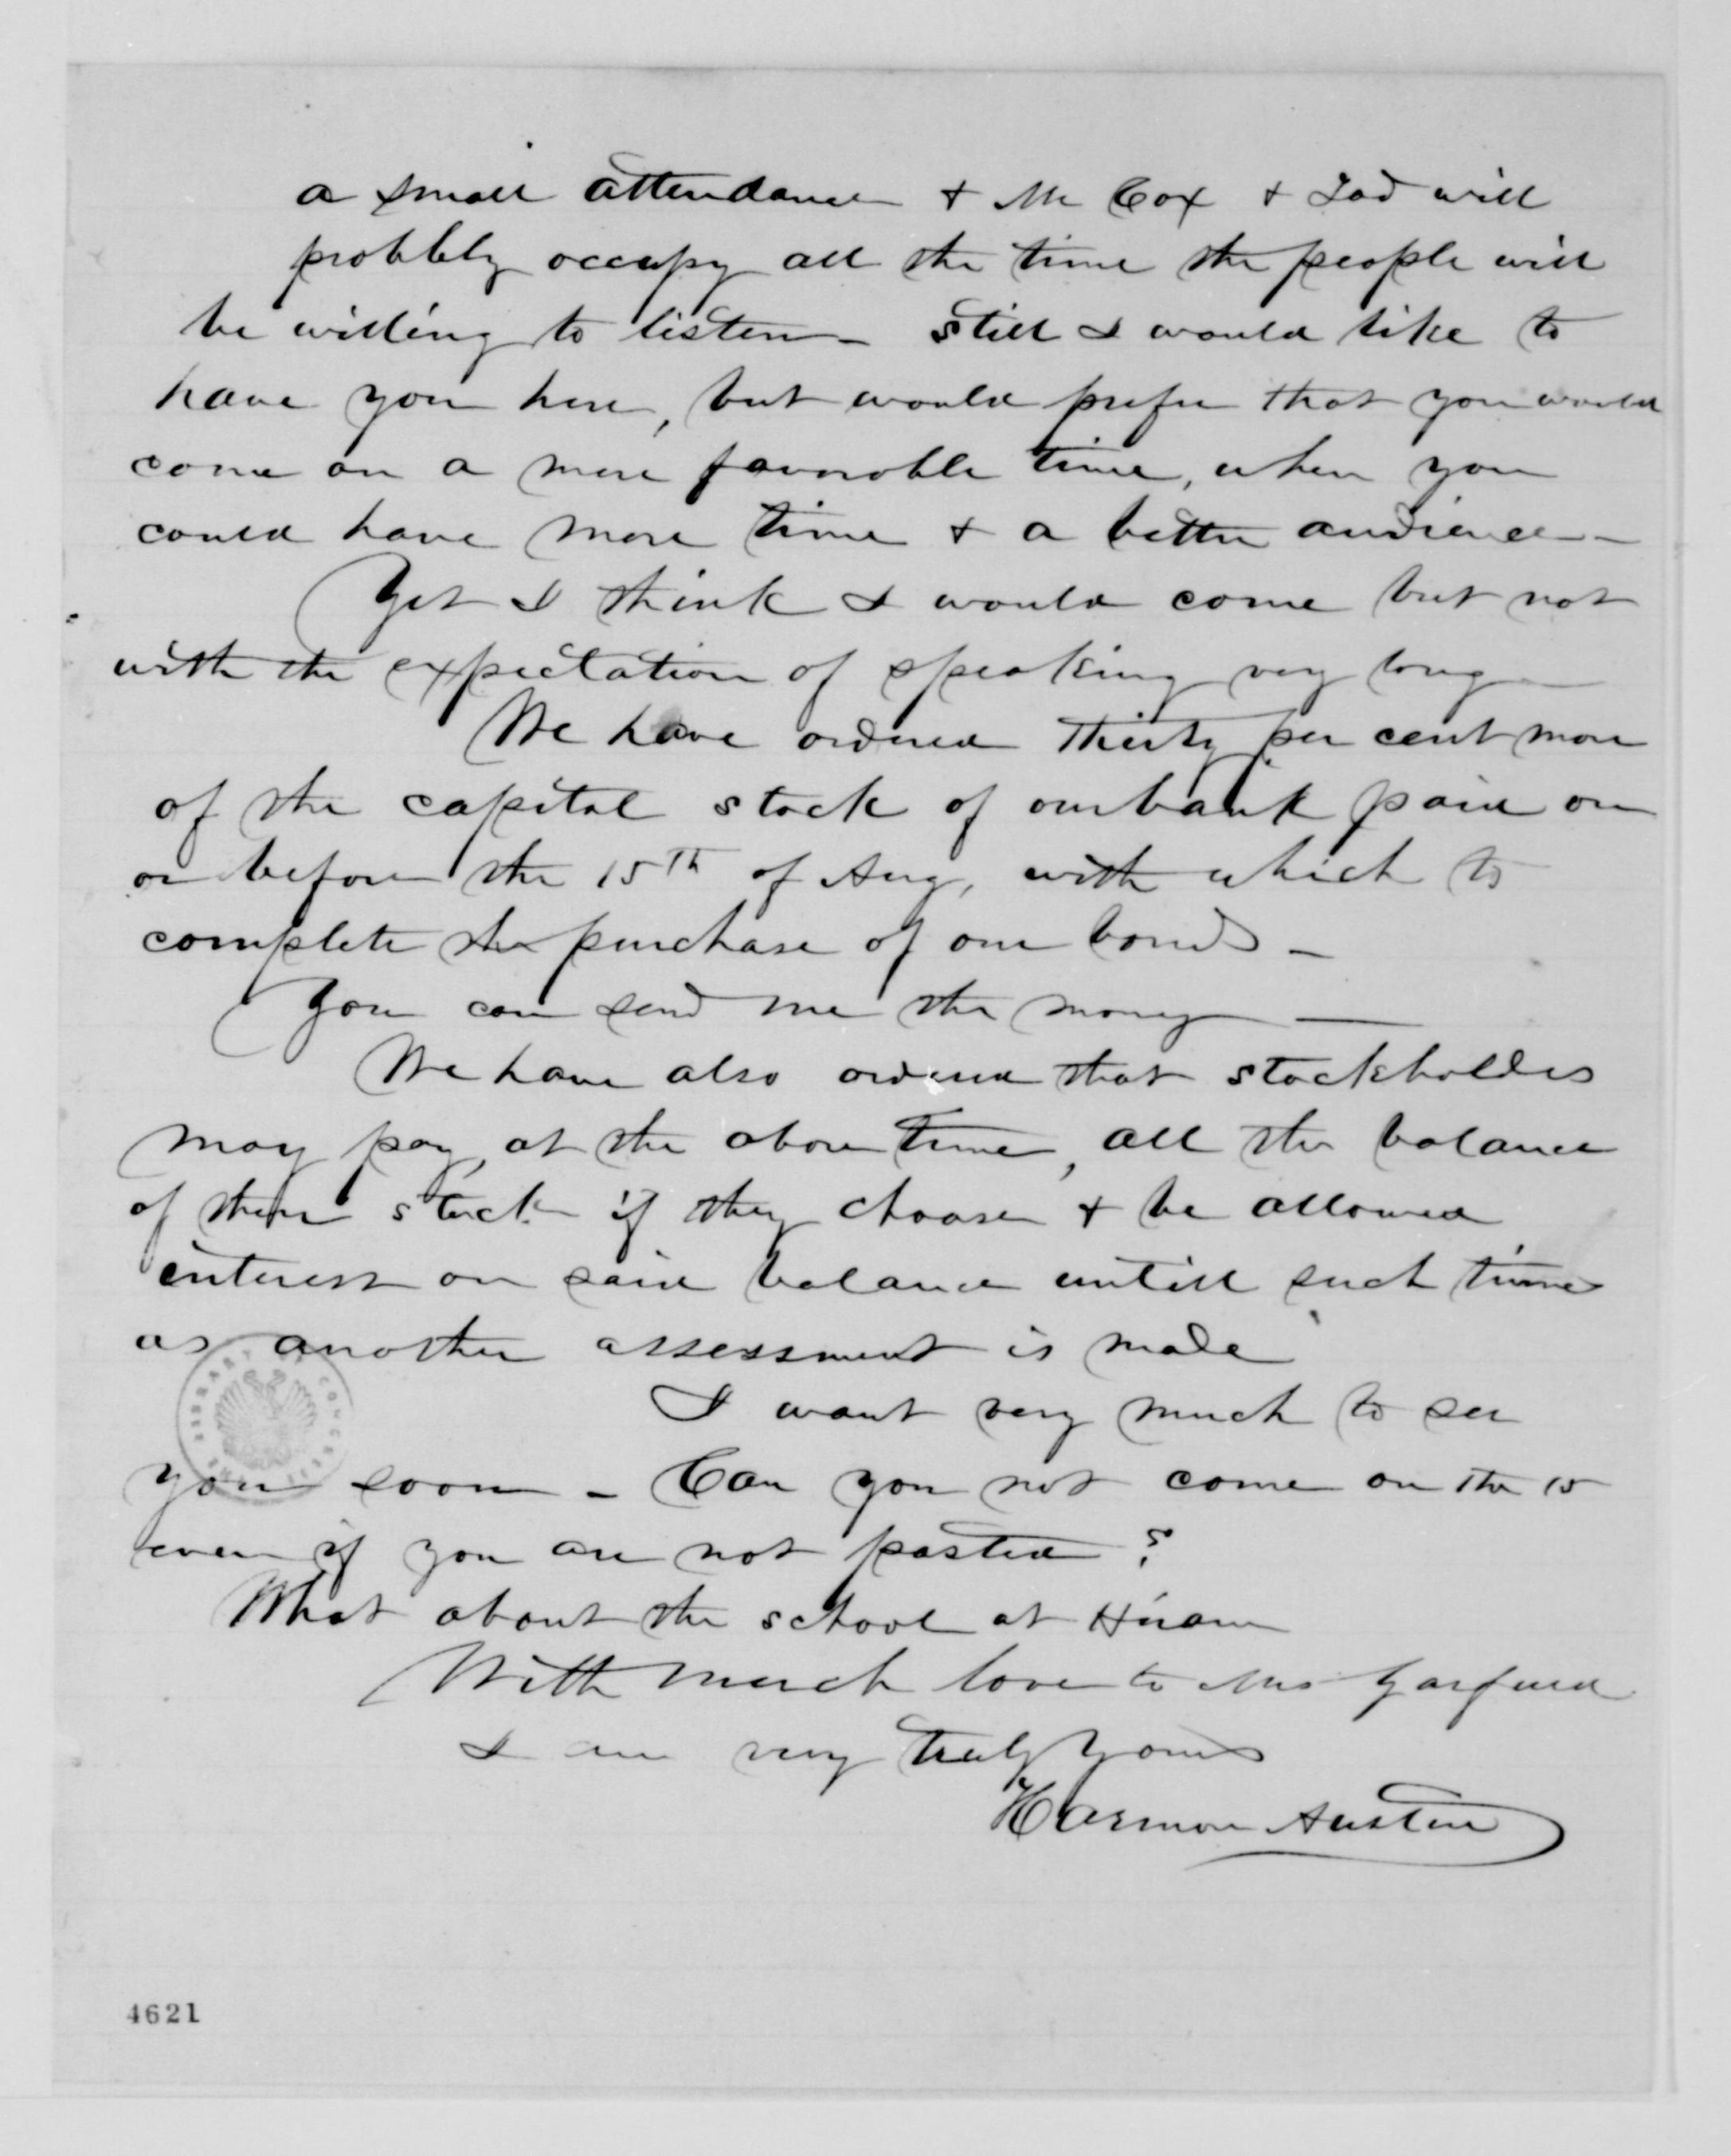 a small attendance & Mr Cox & Tod will
probbly occupy all the time the people will
be willing to listen - still I would like to
have you here, but would prefer that you would
come on a more favorable time, when you
could have more time & a better audience -
Yet I think I would come but not
with the expectation of speaking very long -
We have ordered Thirty per cent more
of the capital stock of our bank paid on
or before the 15th of Aug, with which to
complete the purchase of our bonds -
You can send me the money -
We have also ordered that stockholders
may pay, at the above time, all the balance
of their stock if they choose & be allowed
interest on said balance untill such time
as another assessment is made
I want very much to see
you soon - Can you not come on the 15
even if you are not posted?
What about the school at Hiram
With much love to Mrs Garfield
I am very truly yours
Harmon Austin
LIBRARY CONGRESS
4621